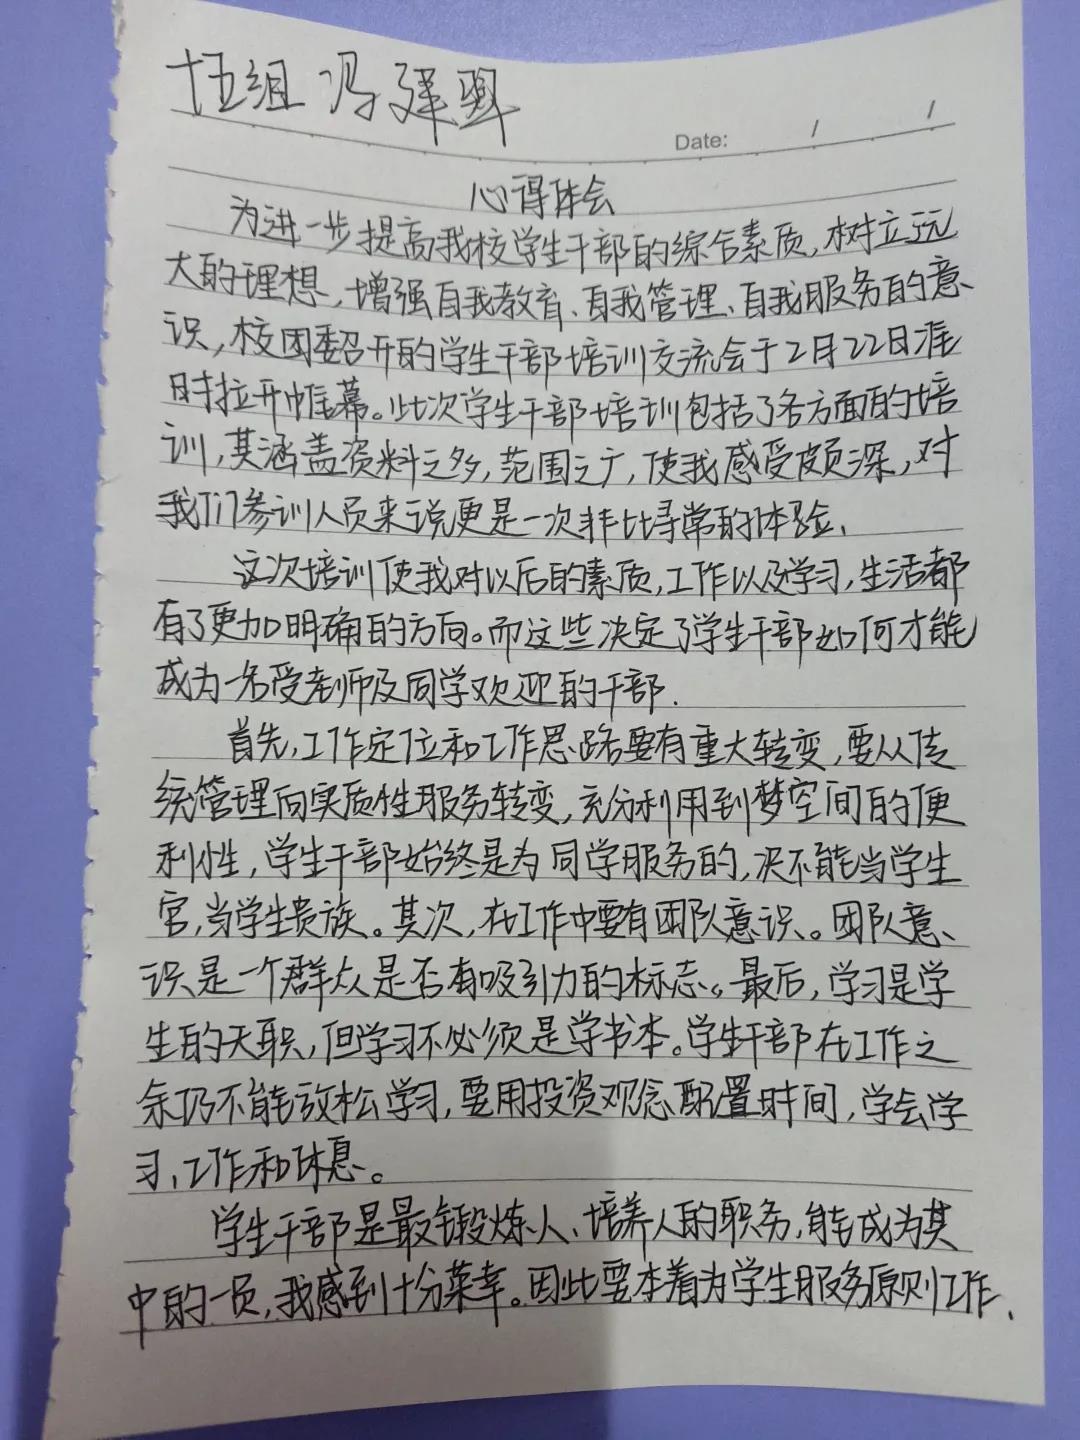 十五组 冯
Date: / /
心得体会
为进一步提高我校学生干部的综合素质,树立远
大的理想,增强自我教育、自我管理、自我服务的意
识,校团委召开的学生干部培训交流会于2月22日准
时拉开帷幕。此次学生干部培训包括了各方面的培
训,其涵盖资料之多,范围之广,使我感受颇深,对
我们参训人员来说更是一次非比寻常的体验.
这次培训使我对以后的素质,工作以及学习,生活都
有了更加明确的方向。而这些决定了学生干部如何才能
成为一名受老师及同学欢迎的干部.
首先,工作定位和工作思路要有重大转变,要从传
统管理向实质性服务转变,充分利用到梦空间的便
利性,学生干部始终是为同学服务的,决不能当学生
官,当学生贵族。其次,在工作中要有团队意识。团队意
识是一个群众是否有吸引力的标志。最后,学习是学
生的天职,但学习不必须是学书本。学生干部在工作之
余仍不能放松学习,要用投资观念配置时间,学会学
习、工作和休息。
学生干部是最锻炼人、培养人的职务,能成为其
中的一员,我感到十分荣幸。因此要本着为学生服务原则工作.